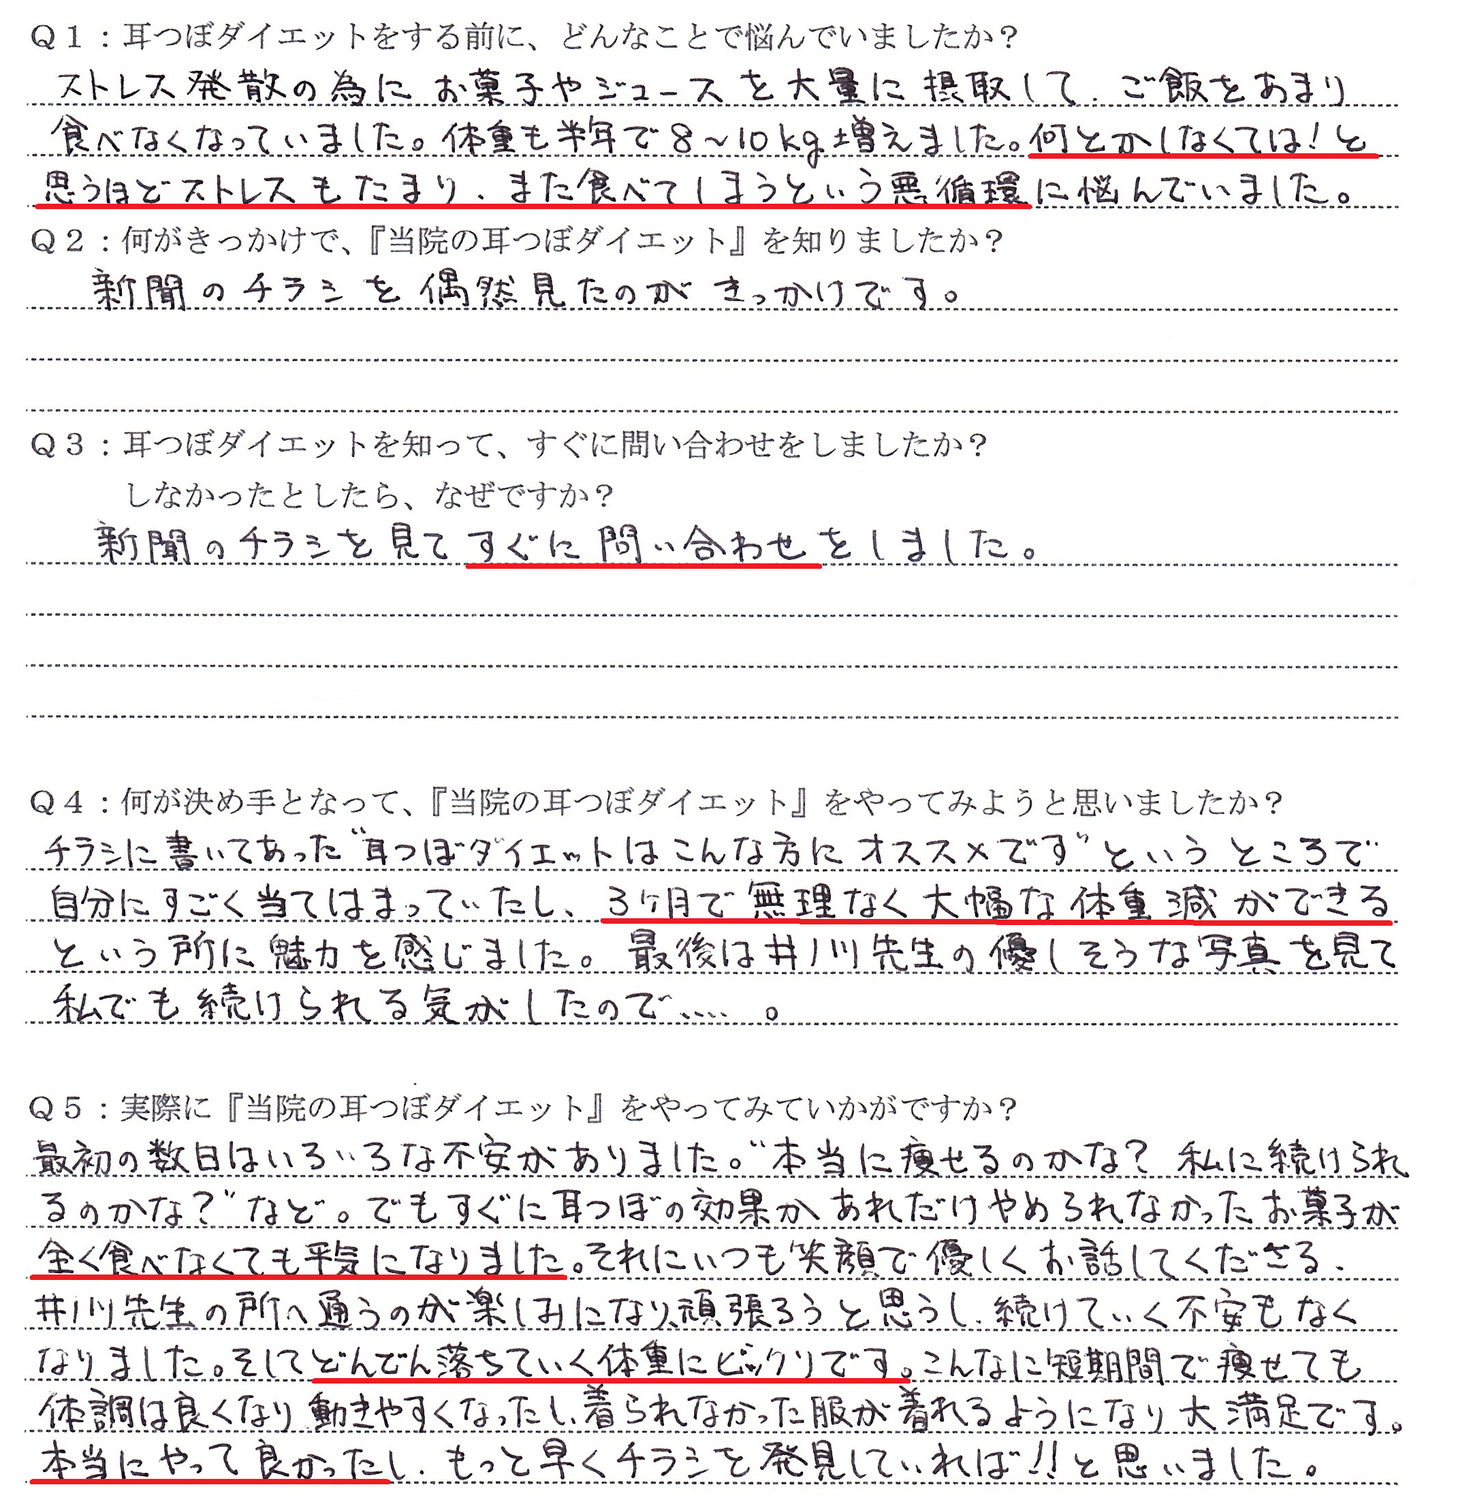 Q1：耳つぼダイエットをする前に、どんなことで悩んでいましたか？
ストレス発散の為にお菓子やジュースを大量に摂取して、ご飯をあまり
食べなくなっていました。体重も半年で8～10kg増えました。何とかしなくては！と
思うほどストレスもたまり、また食べてしまうという悪循環に悩んでいました。
Q2：何がきっかけで、『当院の耳つぼダイエット』を知りましたか？
新聞のチラシを偶然見たのがきっかけです。
Q3：耳つぼダイエットを知って、すぐに問い合わせをしましたか？
しなかったとしたら、なぜですか？
新聞のチラシを見てすぐに問い合わせをしました。
Q4：何が決め手となって、『当院の耳つぼダイエット』をやってみようと思いましたか？
チラシに書いてあった"耳つぼダイエットはこんな方にオススメです"というところで
自分にすごく当てはまっていたし、3ヶ月で無理なく大幅な体重減ができる
という所に魅力を感じました。最後は井川先生の優しそうな写真を見て
私でも続けられる気がしたので....。
Q5：実際に『当院の耳つぼダイエット』をやってみていかがですか？
最初の数日はいろいろな不安がありました。"本当に痩せるのかな？私に続けられ
るのかな？"など。でもすぐに耳つぼの効果かあれだけやめられなかったお菓子が
全く食べなくても平気になりました。それにいつも笑顔で優しくお話してくださる、
井川先生の所へ通うのが楽しみになり、頑張ろうと思うし、続けていく不安もなく
なりました。そしてどんどん落ちていく体重にビックリです。こんなに短期間で痩せても
体調は良くなり動きやすくなったし、着られなかった服が着れるようになり大満足です。
本当にやって良かったし、もっと早くチラシを発見していれば!!と思いました。